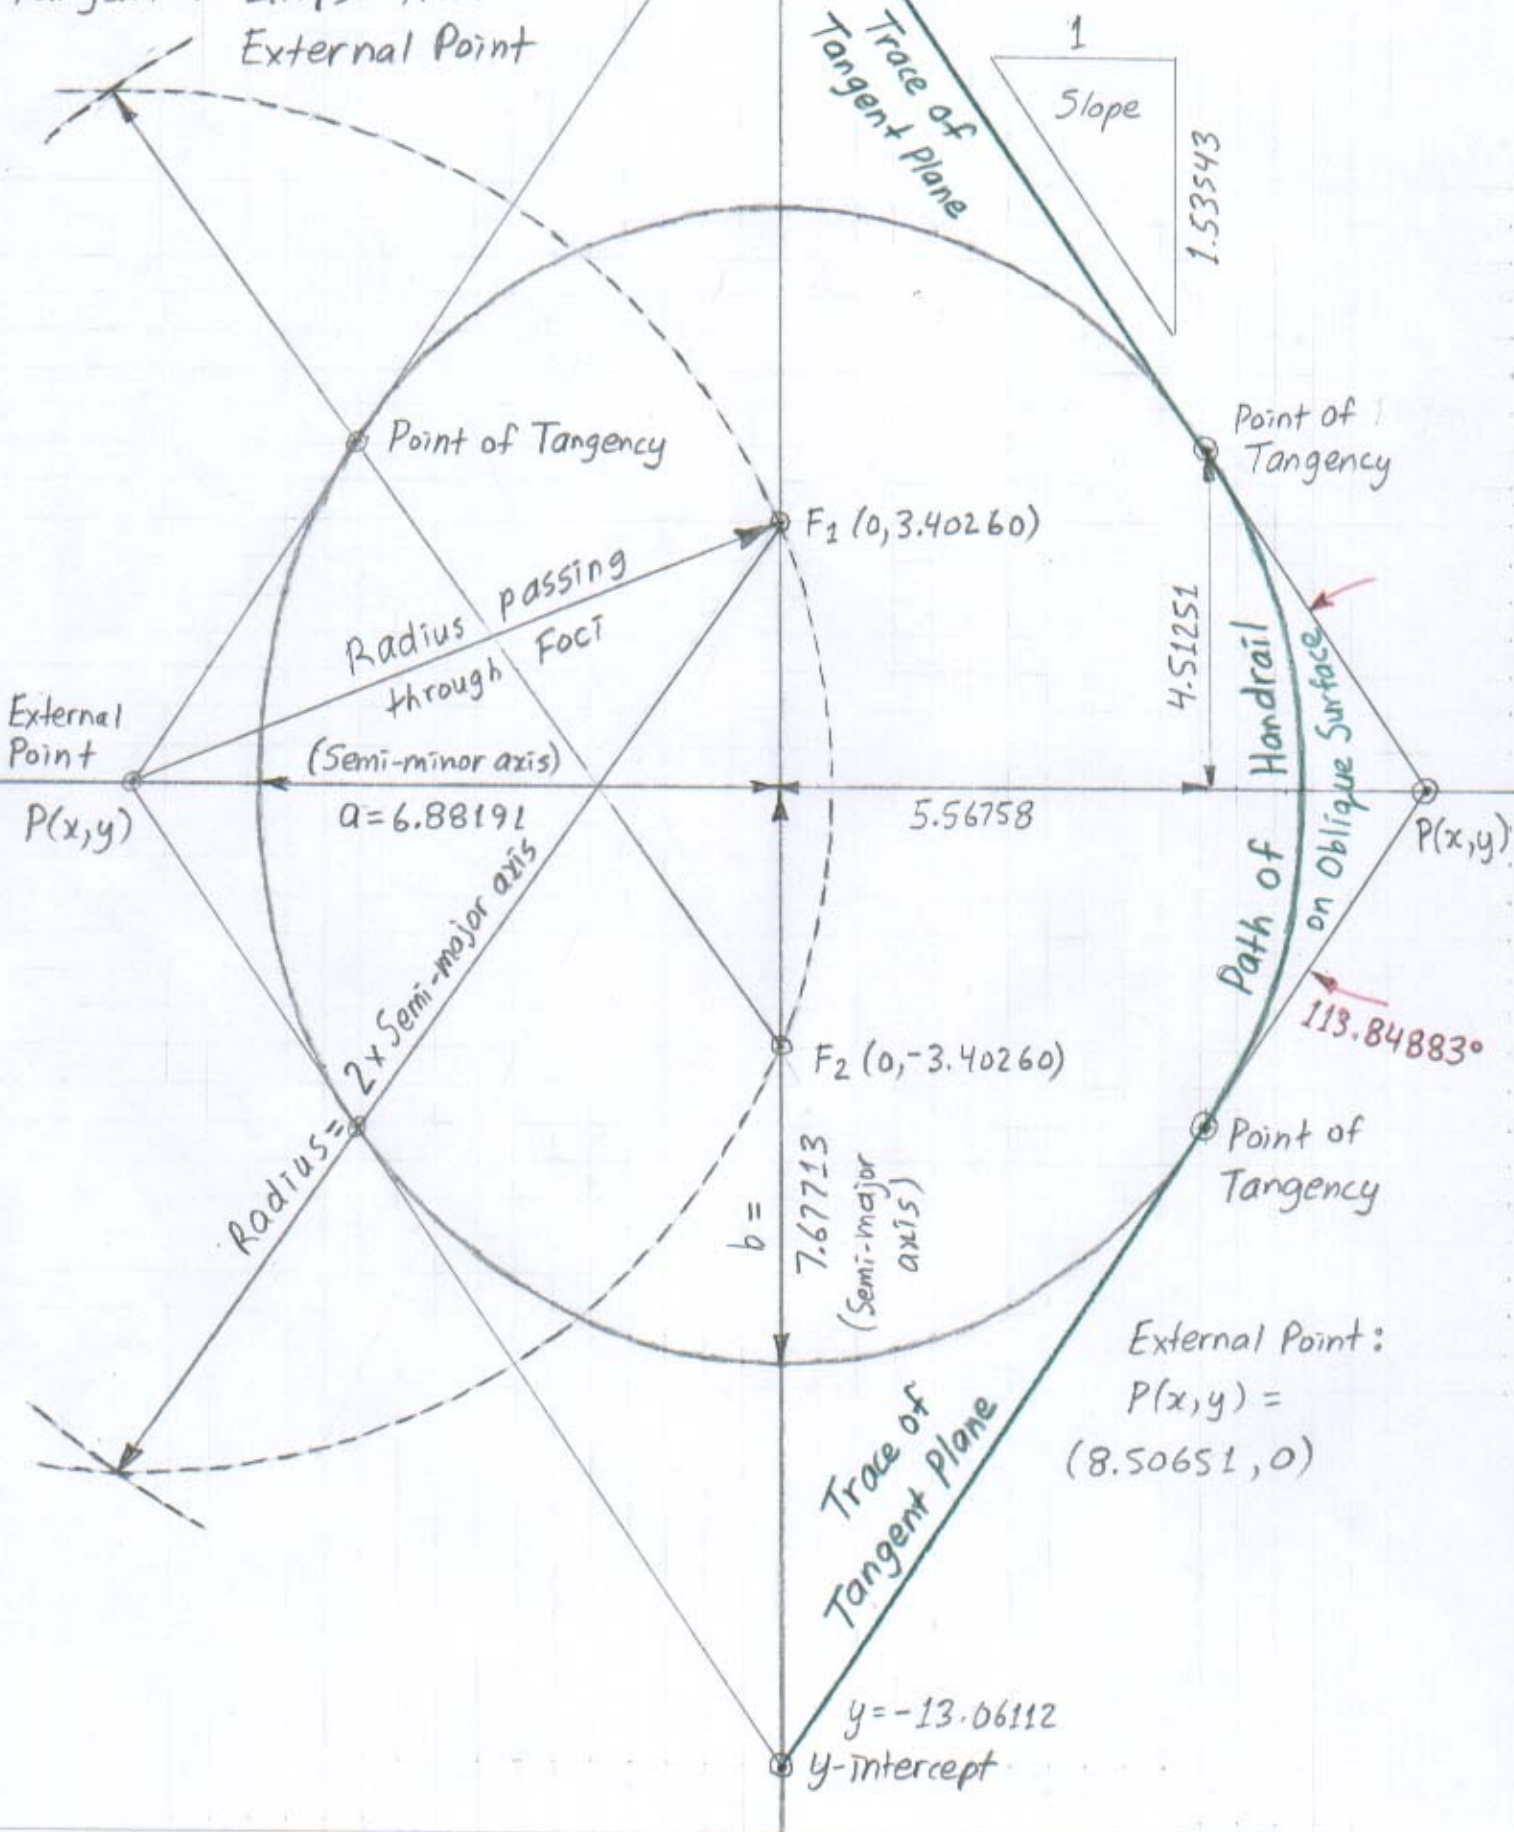 External Point
1
Slope
1.53543
Trace of
Tangent Plane
Point of Tangency
Point of
Tangency
F1 (0,3.40260)
Radius passing
through Foci
4.51251
Path of Handrail
on Oblique Surface
External
Point
P(x,y)
(Semi-minor axis)
a=6.88191
5.56758
P(x,y)
Radius = 2 x Semi-major axis
F2 (0,-3.40260)
113.84883°
Point of
Tangency
b =
7.67713
(Semi-major
axis)
External Point:
P(x,y) =
(8.50651,0)
Trace of
Tangent Plane
y=-13.06112
y-intercept